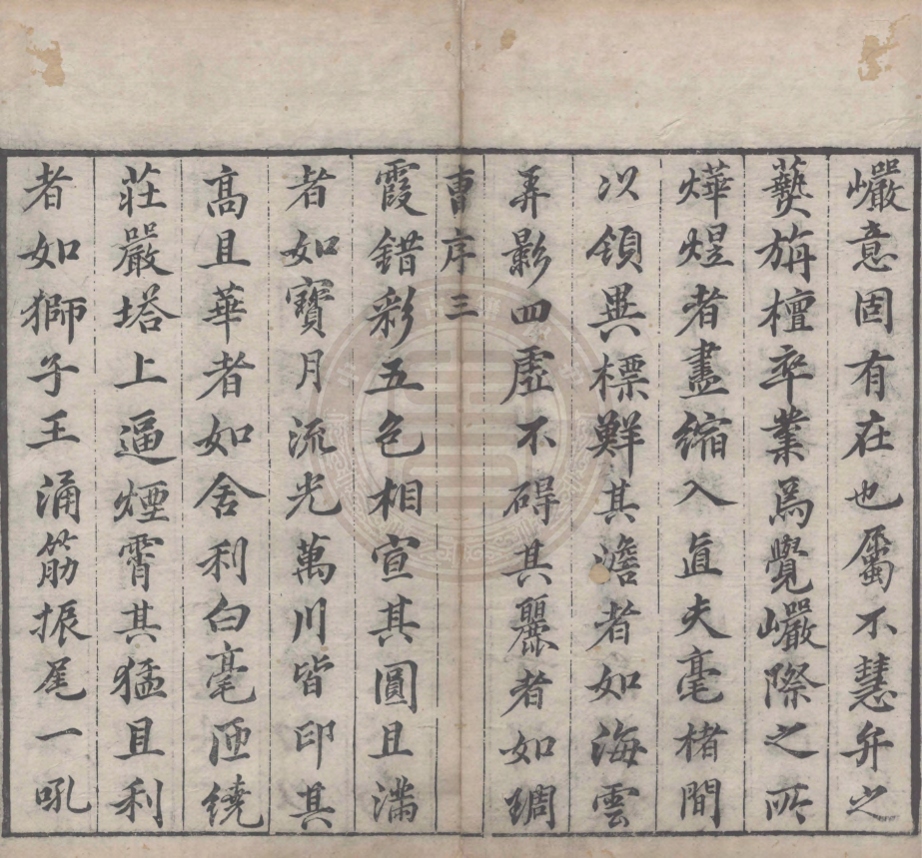 巗意固有在也屬不慧弁之
爇旃檀卒業焉覺巗際之所
燁煜者盡縮入眞夫毫楮間
以領異標鮮其澹者如海雲
弄影四虛不碍其麗者如綢
曹序三
霞錯彩五色相宣其圓且滿
者如寶月流光萬川皆印其
高且華者如舍利白毫迊繞
莊嚴塔上逼煙霄其猛且利
者如獅子王涌筋振尾一吼